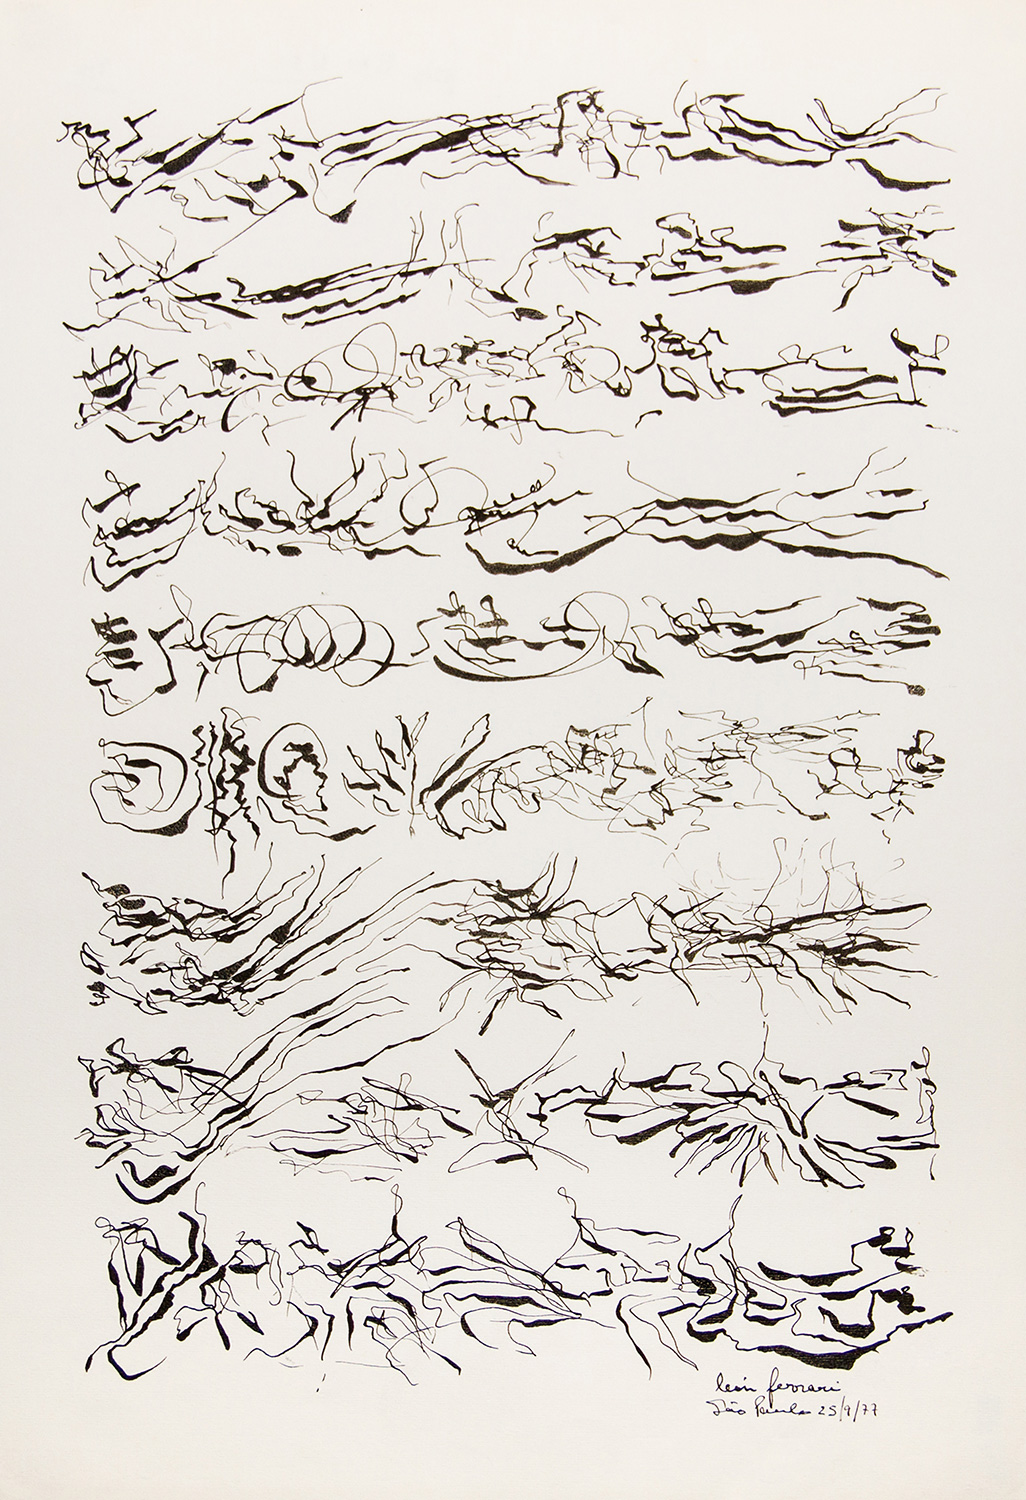 león ferrari
São Paulo 25/9/77